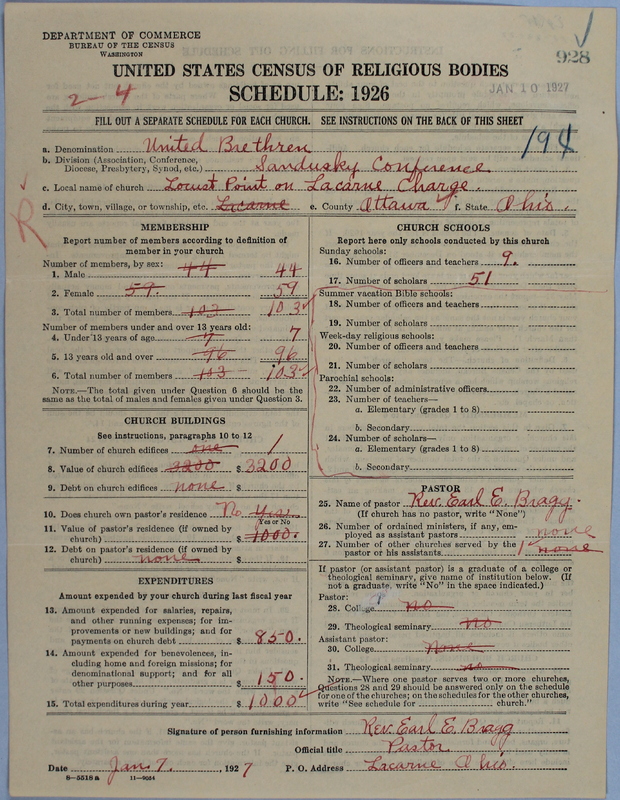 DEPARTMENT OF COMMERCE
BUREAU OF THE CENSUS
WASHINGTON
928
UNITED STATES CENSUS OF RELIGIOUS BODIES
SCHEDULE: 1926
JAN 10 1927
2-4
FILL OUT A SEPARATE SCHEDULE FOR EACH CHURCH. SEE INSTRUCTIONS ON THE BACK OF THIS SHEET
194
a. Denomination United Brethren
b. Division (Association, Conference, Diocese, Presbytery, Synod, etc.) Sandusky Conference
c. Local name of church Locust Point on Lacarne Charge.
d. City, town, village, or township, etc. Lacarne e. County Ottawa f. State Ohio.
R
MEMBERSHIP
Report number of members according to definition of
member in your church
Number of members, by sex:
1. Male 44 44
2. Female 59. 59
3. Total number of members 103 103
Number of members under and over 13 years old:
4. Under 13 years of age 7 7
5. 13 years old and over 96 96
6. Total number of members 103 103
NOTE.—The total given under Question 6 should be
same as the total of males and females given under Question 3.
CHURCH BUILDINGS
See instructions, paragraphs 10 to 12
7. Number of church edifices one 1
8. Value of church edifices 3200 $ 3200
9. Debt on church edifices none $
10. Does church own pastor's residence No Yes.
Yes or No
11. Value of pastor's residence (if owned by
church) $ 1000.
12. Debt on pastor's residence (if owned by
church) none $
EXPENDITURES
Amount expended by your church during last fiscal year
13. Amount expended for salaries, repairs,
and other running expenses; for im-
provements or new buildings; and for
payments on church debt $ 850.
14. Amount expended for benevolences, in-
cluding home and foreign missions; for
denominational support; and for all
other purposes $ 150.
15. Total expenditures during year $ 1000
CHURCH SCHOOLS
Report here only schools conducted by this church
Sunday schools:
16. Number of officers and teachers 9.
17. Number of scholars 51
Summer vacation Bible schools:
18. Number of officers and teachers
19. Number of scholars
Week-day religious schools:
20. Number of officers and teachers
21. Number of scholars
Parochial schools:
22. Number of administrative officers
23. Number of teachers—
a. Elementary (grades 1 to 8)
b. Secondary
24. Number of scholars—
a. Elementary (grades 1 to 8)
b. Secondary
PASTOR
25. Name of pastor Rev. Earl E. Bragg.
(If church has no pastor, write "None")
26. Number of ordained ministers, if any, em-
ployed as assistant pastors none
27. Number of other churches served by the
pastor or his assistants 1 none
If pastor (or assistant pastor) is a graduate of a college or
theological seminary, give name of institution below. (If
not a graduate, write "No" in the space indicated.)
Pastor:
28. College no
29. Theological seminary no
Assistant pastor:
30. College None
31. Theological seminary no
NOTE.—Where one pastor serves two or more churches,
Questions 28 and 29 should be answered only on the schedule
for one of the churches; on the schedules for the other churches,
write "See schedule for church."
Signature of person furnishing information Rev. Earl E. Bragg
Official title Pastor
Date Jan. 7. , 1927 P. O. Address Lacarne Ohio.
8-5518 a 11-9054